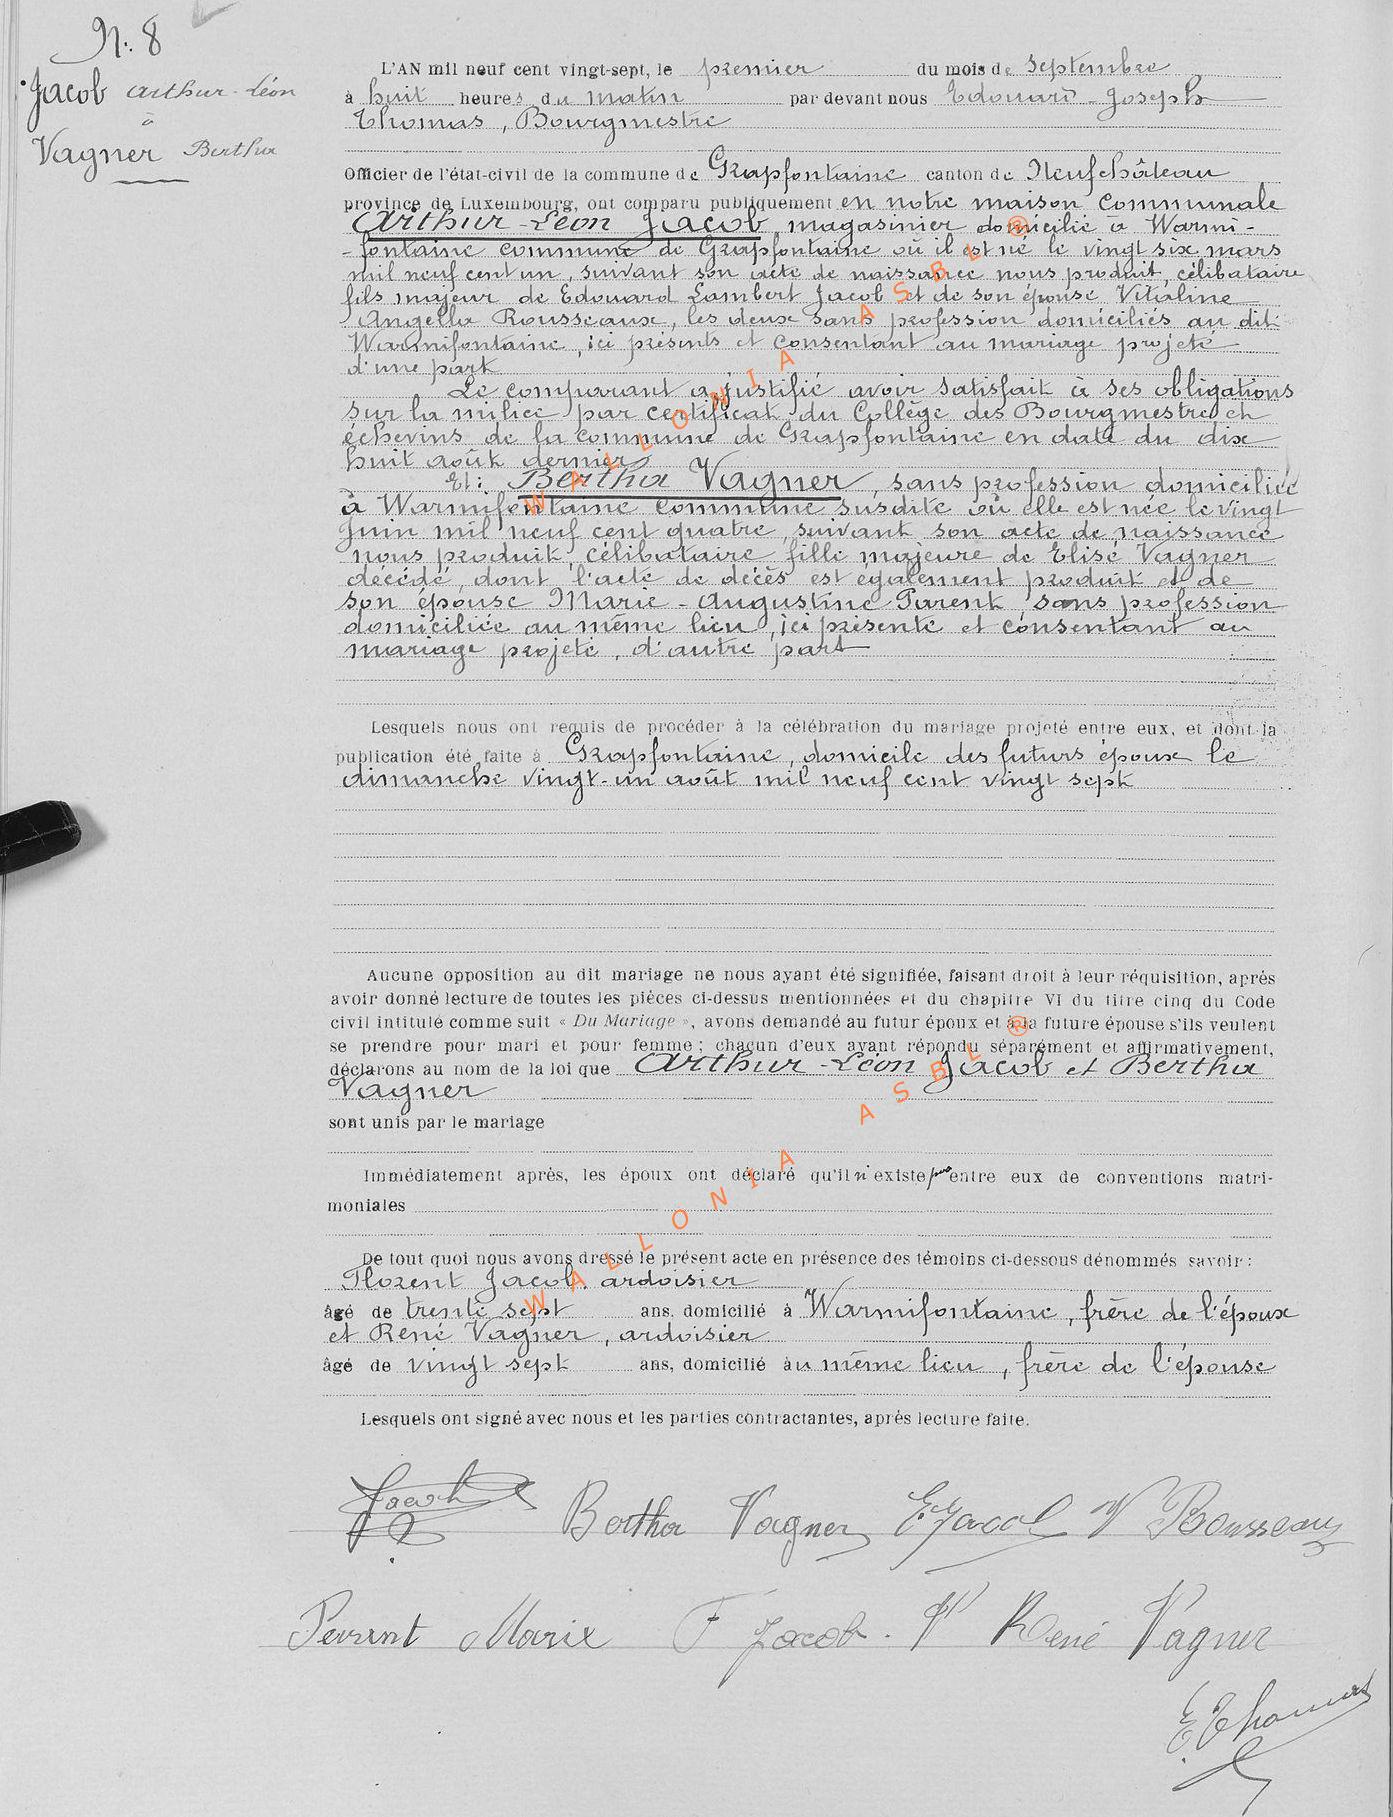 N: 8
Jacob Arthur-Léon
à
Vagner Bertha
L'AN mil neuf cent vingt-sept, le premier du mois de septembre
à huit heures du matin par devant nous Edouard-Joseph
Thomas, Bourgmestre
Officier de l'état-civil de la commune de Grapfontaine canton de Neufchâteau
province de Luxembourg, ont comparu publiquement en notre maison communale
Arthur-Léon Jacob, magasinier domicilié à Warmi-
-fontaine commune de Grapfontaine où il est né le vingt six mars
mil neuf cent un, suivant son acte de naissance nous produit, célibataire
fils majeur de Edouard Lambert Jacob et de son épouse Vitaline
Angella Rousseaux, les deux sans profession domiciliés au dit
Warmifontaine, ici présents et consentant au mariage projeté
d'une part
Le comparant a justifié avoir satisfait à ses obligations
sur la milice par certificat du Collège des Bourgmestre et
échevins de la commune de Grapfontaine en date du dix
huit août dernier
Et: Bertha Vagner, sans profession domiciliée
à Warmifontaine commune susdite où elle est née le vingt
juin mil neuf cent quatre, suivant son acte de naissance
nous produit, célibataire, fille majeure de Elisé Vagner
décédé, dont l'acte de décès est également produit et de
son épouse Marie-Augustine Parent, sans profession
domiciliée au même lieu, ici présente et consentant au
mariage projeté, d'autre part
Lesquels nous ont requis de procéder à la célébration du mariage projeté entre eux, et dont la
publication été faite à Grapfontaine, domicile des futurs époux le
dimanche vingt-un août mil neuf cent vingt sept
Aucune opposition au dit mariage ne nous ayant été signifiée, faisant droit à leur réquisition, après
avoir donné lecture de toutes les pièces ci-dessus mentionnées et du chapitre VI du titre cinq du Code
civil intitulé comme suit « Du Mariage », avons demandé au futur époux et à la future épouse s'ils veulent
se prendre pour mari et pour femme ; chacun d'eux ayant répondu séparément et affirmativement,
déclarons au nom de la loi que Arthur-Léon Jacob et Bertha
Vagner
sont unis par le mariage
Immédiatement après, les époux ont déclaré qu'il n'existe pas entre eux de conventions matri-
moniales
De tout quoi nous avons dressé le présent acte en présence des témoins ci-dessous dénommés savoir :
Florent Jacob, ardoisier
âgé de trente sept ans, domicilié à Warmifontaine, frère de l'époux
et René Vagner, ardoisier
âgé de vingt sept ans, domicilié au même lieu, frère de l'épouse
Lesquels ont signé avec nous et les parties contractantes, après lecture faite.
Jacob Bertha Vagner E Jacob V Rousseaux
Parent Marie F Jacob. René Vagner
E Thomas
WALLONIA ASBL ®
WALLONIA ASBL ®